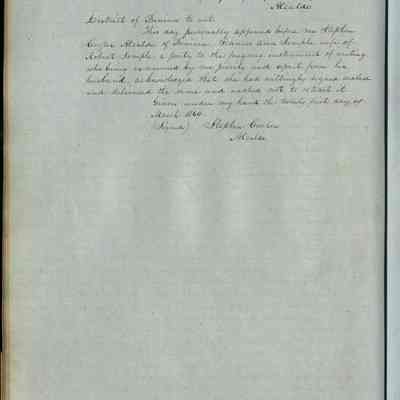 Alcalde
District of Benicia to wit:
This day personally appeared before me Stephen
Cooper Alcalde of Benicia Frances Ann Semple wife of
Robert Semple, a party to the foregoing instrument of writing
who being examined by me privily and apart from her
husband, acknowledged that she had willingly signed sealed
and delivered the same and wished not to retract it
Given under my hand the twenty first day of
March
(Signed) Stephen Cooper
Alcalde